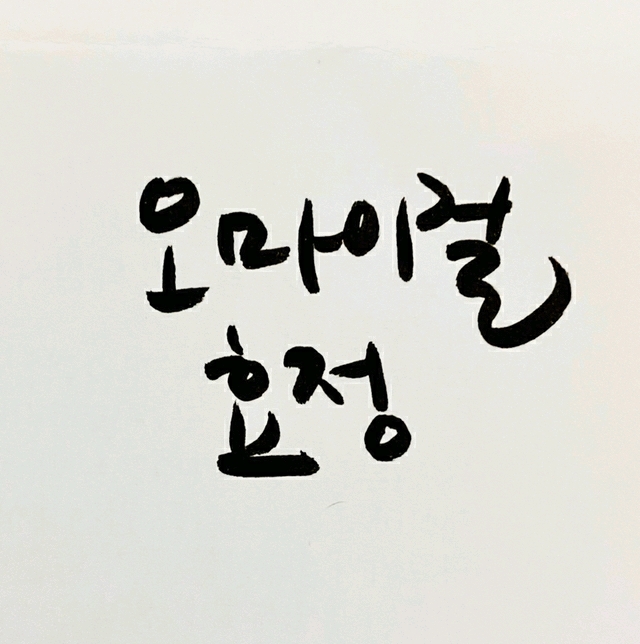 오마이걸
효정